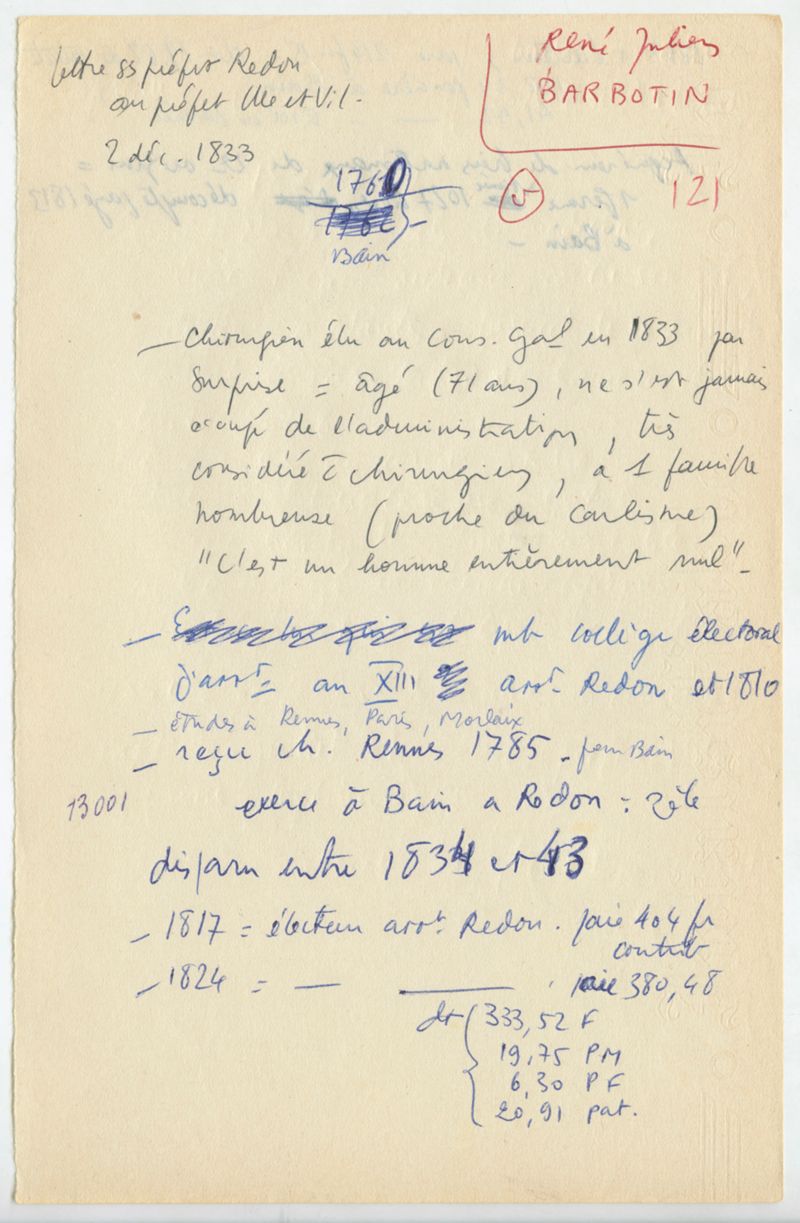 lettre ss préfet Redon
au préfet Ille et Vil.
2 déc. 1833
René Julien
BARBOTIN
121
v
1760
1762
Bain
— Chirurgien élu au Cons. Gal en 1833 par
surprise = âgé (71 ans), ne s'est jamais
occupé de l'administration, très
considéré c̄ chirurgien, a 1 famille
nombreuse (proche du Carlisme)
"C'est un homme entièrement nul" –
— mb collège électoral
d'arrt = an XIII arrt. Redon et 1810
— études à Rennes, Paris, Morlaix
— reçu ch. Rennes 1785 – pour Bain
13001
exerce à Bain a Redon = zèle
disparu entre 1834 et 43
— 1817 = électeur arrt Redon. paie 404 fr
contrib
— 1824 = — —— , paie 380,48
dt { 333,52 F
19,75 PM
6,30 PF
20,91 pat.